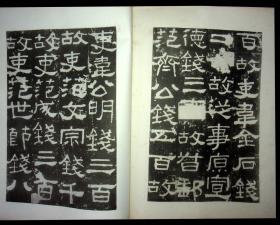 百故吏韋金石錢
二 故從事原宣
德錢三 故督郵
范齊公錢五百故
吏韋公明錢三百
故吏范文宗錢千
故吏范成錢三百
故吏范世節錢八